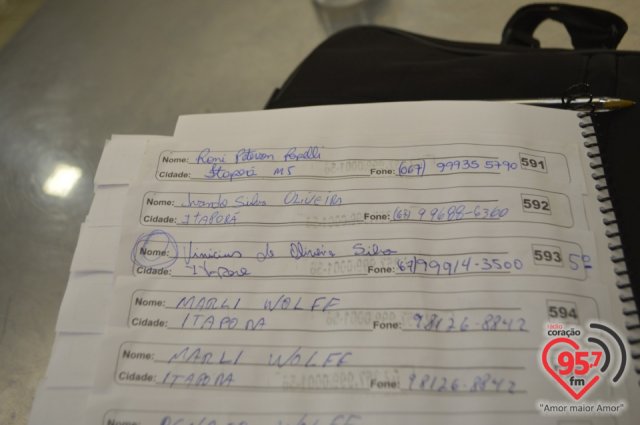 Nome: Roni Peterson 591
Cidade: Itaporã MS Fone: (067) 99935 5790
Nome: Silva Oliveira 592
Cidade: ITAPORÃ Fone: (67) 99688-6300
Nome: Vinicius de Oliveira Silva 593 5º
Cidade: Fone: 67/99914-3500
Nome: MARLI WOLFF 594
Cidade: ITAPORA Fone: 98126-8842
Nome: MARLI WOLFF
Cidade: ITAPORA Fone: 98126-8842
Nome: WOLFF
rádio
coração
95.7
fm
"Amor maior Amor"